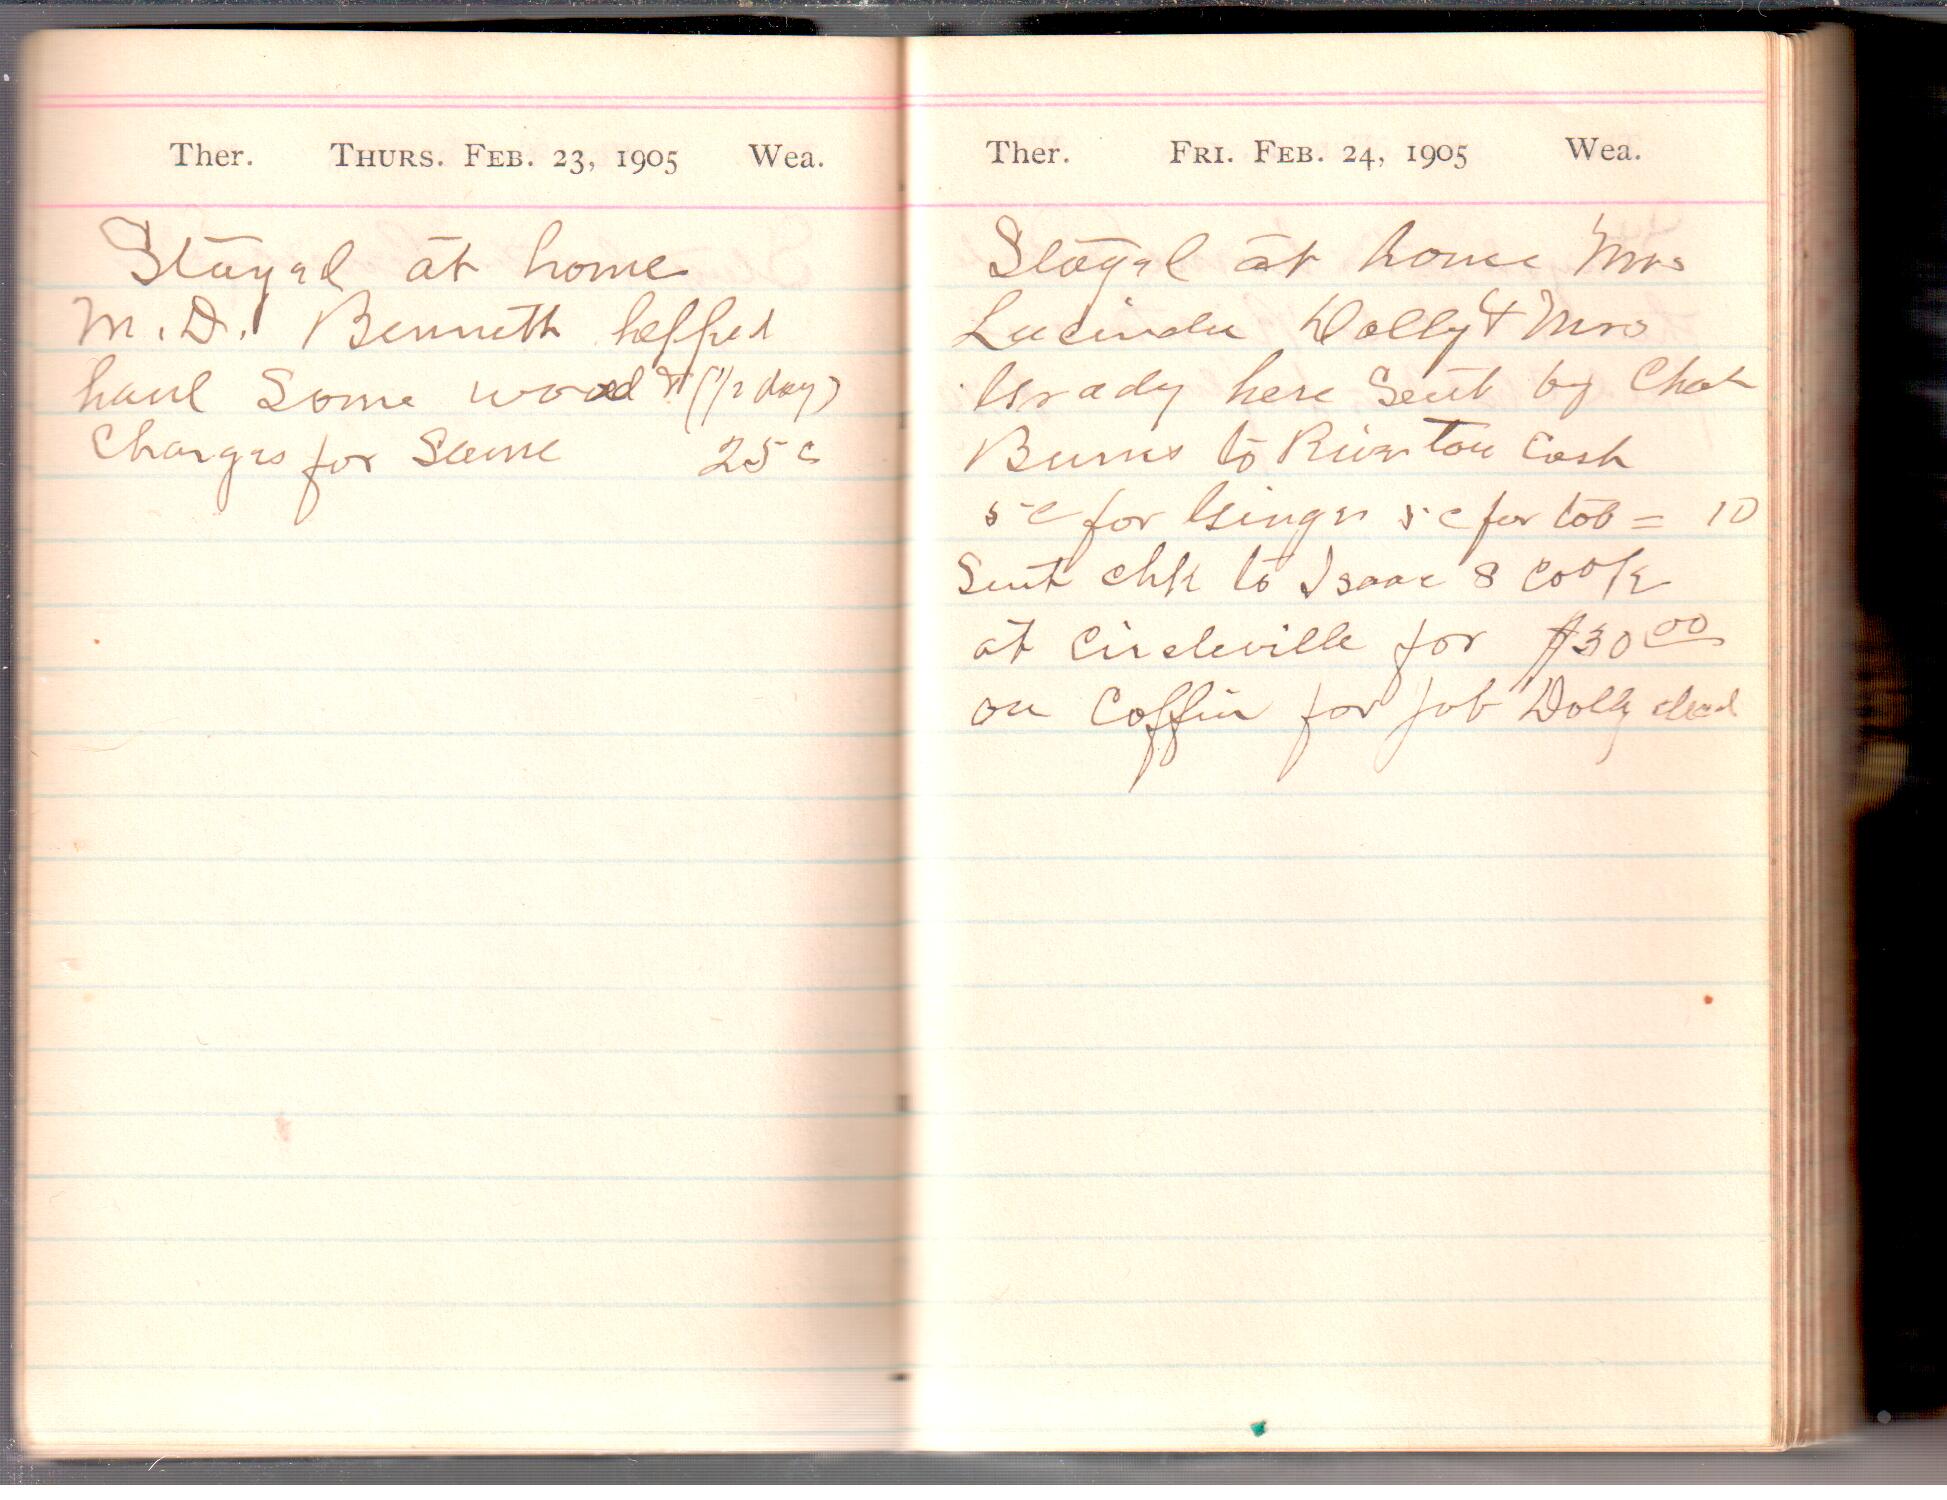 Ther. Thurs. Feb. 23, 1905 Wea.
Stayed at home
M. D. Bennett helped
haul Some wood (1/2 day)
Charges for Same 25 c
Ther. Fri. Feb. 24, 1905 Wea.
Stayed at home Mrs
Lucinda Dolly & Mrs
Grady here Sent by
to Riverton Cash
5 c for Ginger 5 c for tob = 10
Sent chk to Isaac S Cook
at Circleville for $30 00
on Coffin for Job Dolly decd